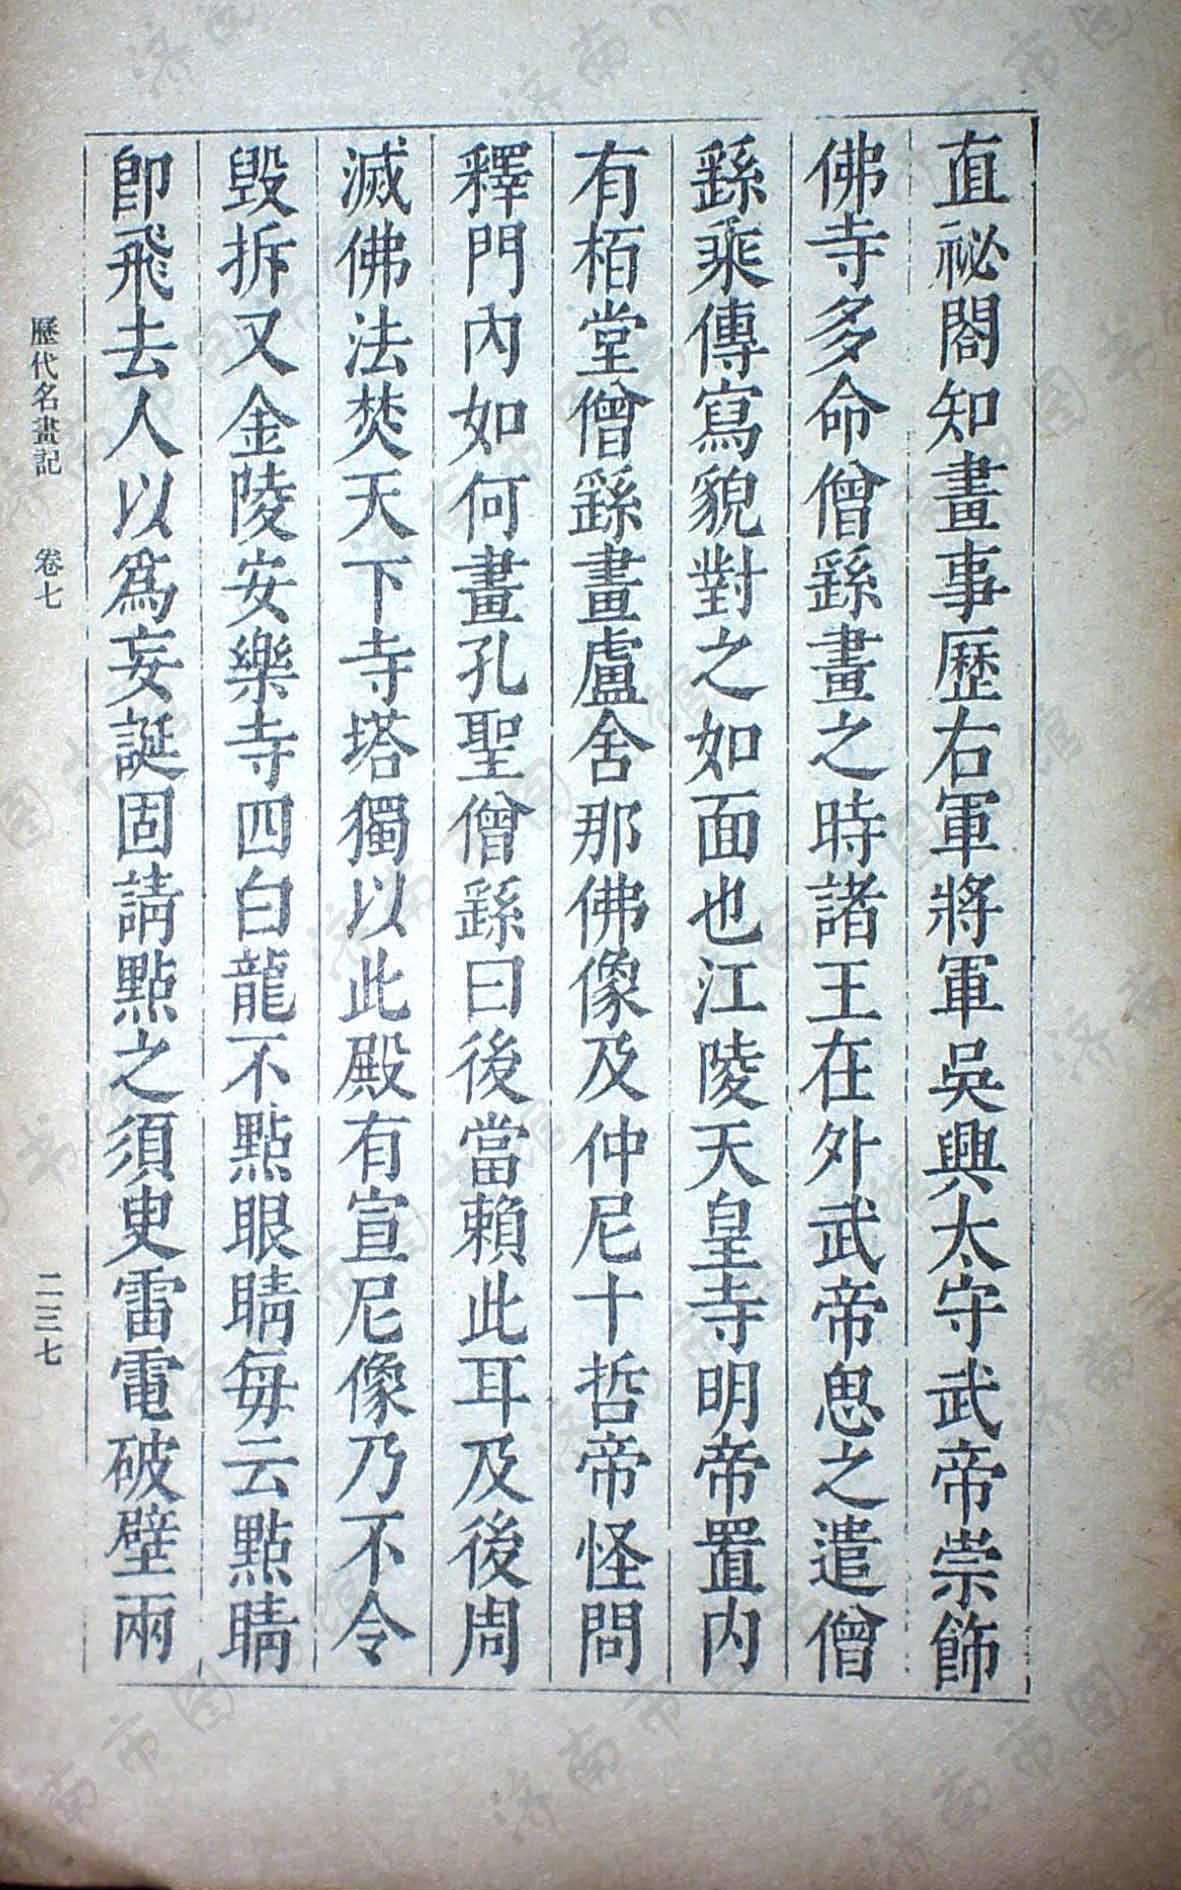 直祕閣知畫事歷右軍將軍吳興太守武帝崇飾
佛寺多命僧繇畫之時諸王在外武帝思之遣僧
繇乘傳寫貌對之如面也江陵天皇寺明帝置内
有栢堂僧繇畫盧舍那佛像及仲尼十哲帝怪問
釋門內如何畫孔聖僧繇曰後當賴此耳及後周
滅佛法焚天下寺塔獨以此殿有宣尼像乃不令
毀拆又金陵安樂寺四白龍不點眼睛每云點睛
卽飛去人以為妄誕固請點之須臾雷電破壁兩
歷代名畫記 卷七 二三七
济南市图书馆